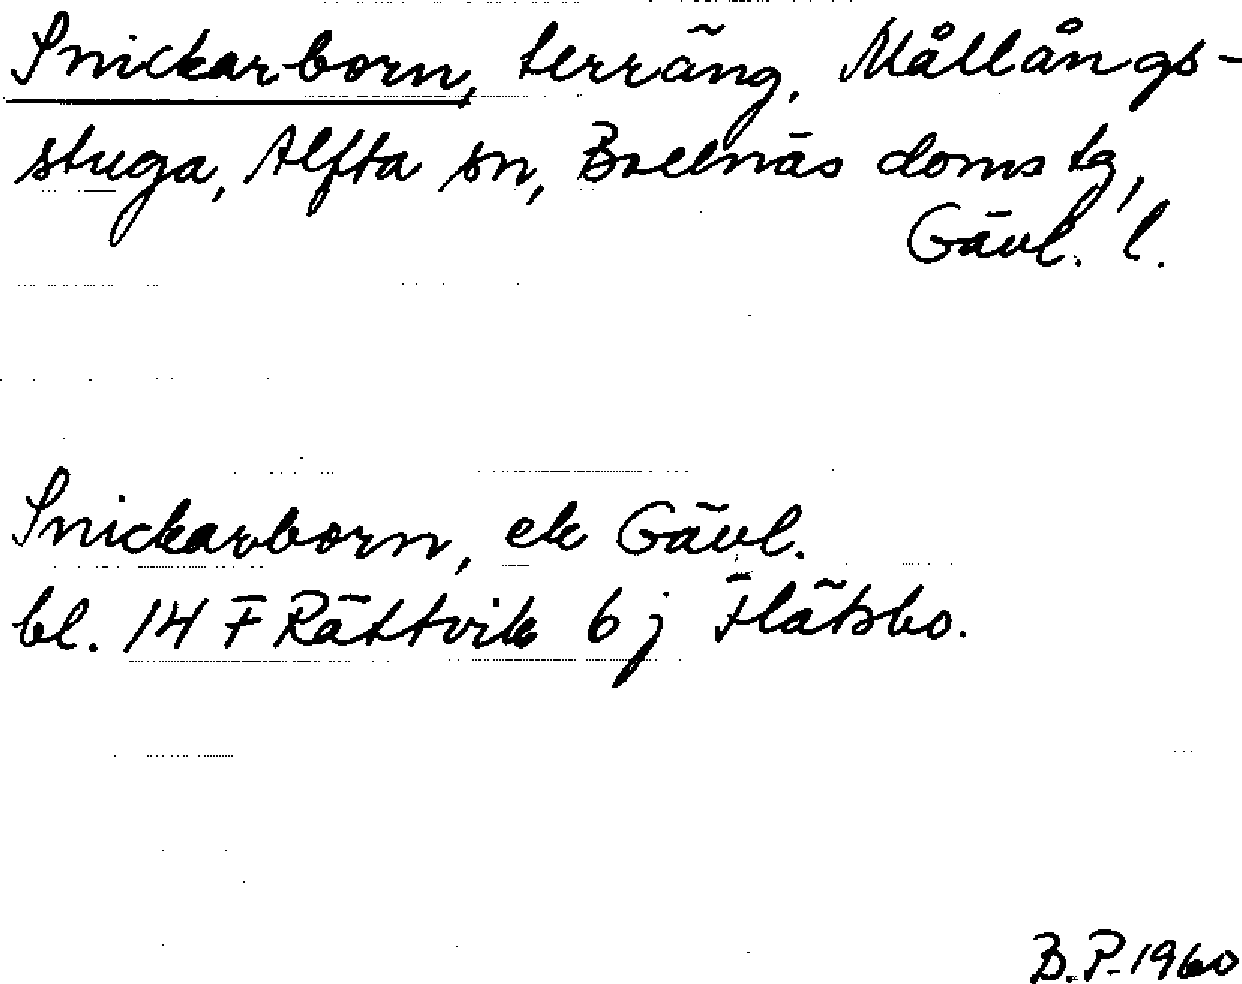 Snickarborn, terräng, Mållångs-
stuga, Alfta sn, Bollnäs doms tg,
Gävl. l.
Snickarborn, ek Gävl.
bl. 14 F Rättvik 6 j Flätsbo.
B.P. 1960